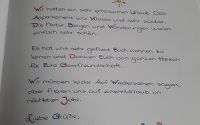 Wir hatten ein sehr erholsamen Urlaub. Das
Appartement war Klasse und sehr sauber.
Die Natur, Berge und Wanderungen waren
einfach sehr schön.
Es hat uns sehr gefreut Euch kennen zu
lernen und Danken Euch von ganzem Herzen
für Eure Gastfreundschaft.
Wir möchten leider Auf Wiedersehen sagen,
aber freuen uns auf einen Urlaub im
nächsten Jahr.
Liebe Grüße,